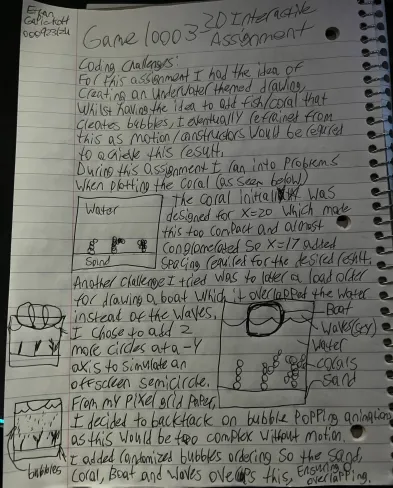 Game 10003 - 2D Interactive
Assignment
Coding Challenges:
For this assignment I had the idea of
Creating an underwater themed drawing,
Whilst having the idea to add fish/coral that
Creates bubbles, I eventually refrained from
this as motion/constructors would be required
to achieve this result.
During this assignment I ran into Problems
When plotting the Coral (as seen below)
Water
Sand
The Coral initially was
designed for X=20 Which made
this too compact and almost
Conglomerated So X=17 added
Spacing required for the desired result.
Another challenge I tried was to later a load order
for drawing a boat Which it overlapped the Water
instead of the Waves,
I chose to add 2
more circles at a -Y
axis to simulate an
offscreen semicircle.
Boat
Waves
Water
Corals
Sand
From my Pixel grid Paper,
I decided to backtrack on bubble Popping animations
as this Would be too complex Without motion.
I added randomized bubbles ordering So the Sand,
Coral, Boat and Waves overlaps this, Ensuring 0
overlapping.
bubbles